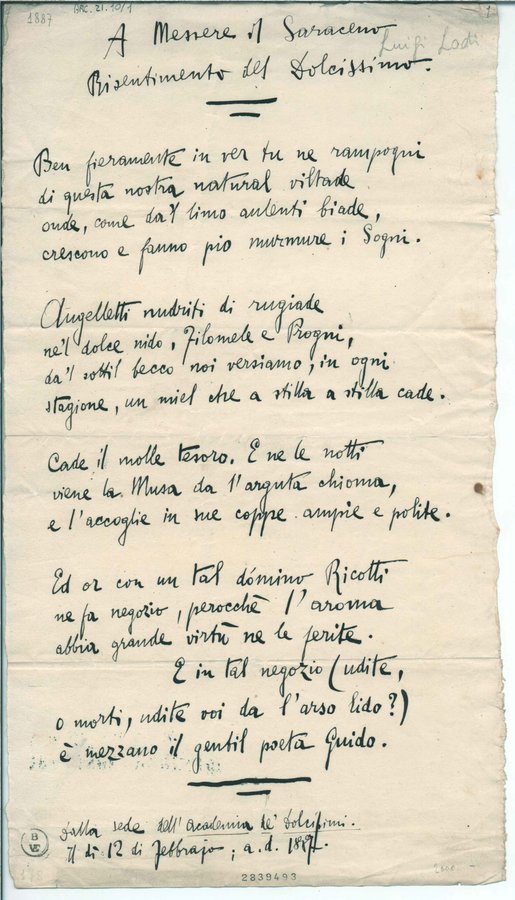 1887
BRC. 21. 10/1
1
A Messere il Saraceno
Luigi Lodi
Risentimento del Dolcissimo.
Ben fieramente in ver tu ne rampogni
di questa nostra natural viltade
onde, come da 'l limo aulenti biade,
crescono e fanno pio murmure i Sogni.
Augelletti nudriti di rugiade
ne 'l dolce nido, Filomele e Progni,
da 'l sottil becco noi versiamo, in ogni
stagione, un miel che a stilla a stilla cade.
Cade il molle tesoro. E ne le notti
viene la Musa da l'arguta chioma,
e l'accoglie in sue coppe ampie e polite.
Ed or con un tal dómino Ricotti
ne fa negozio, perocchè l'aroma
abbia grande virtù ne le ferite.
E in tal negozio (udite,
o morti, udite voi da l'arso lido?)
è mezzano il gentil poeta Guido.
Dalla sede dell'Accademia de' Dolcissimi.
Il dì 12 di Febbrajo, a. d. 1887.
B
VE
2839493